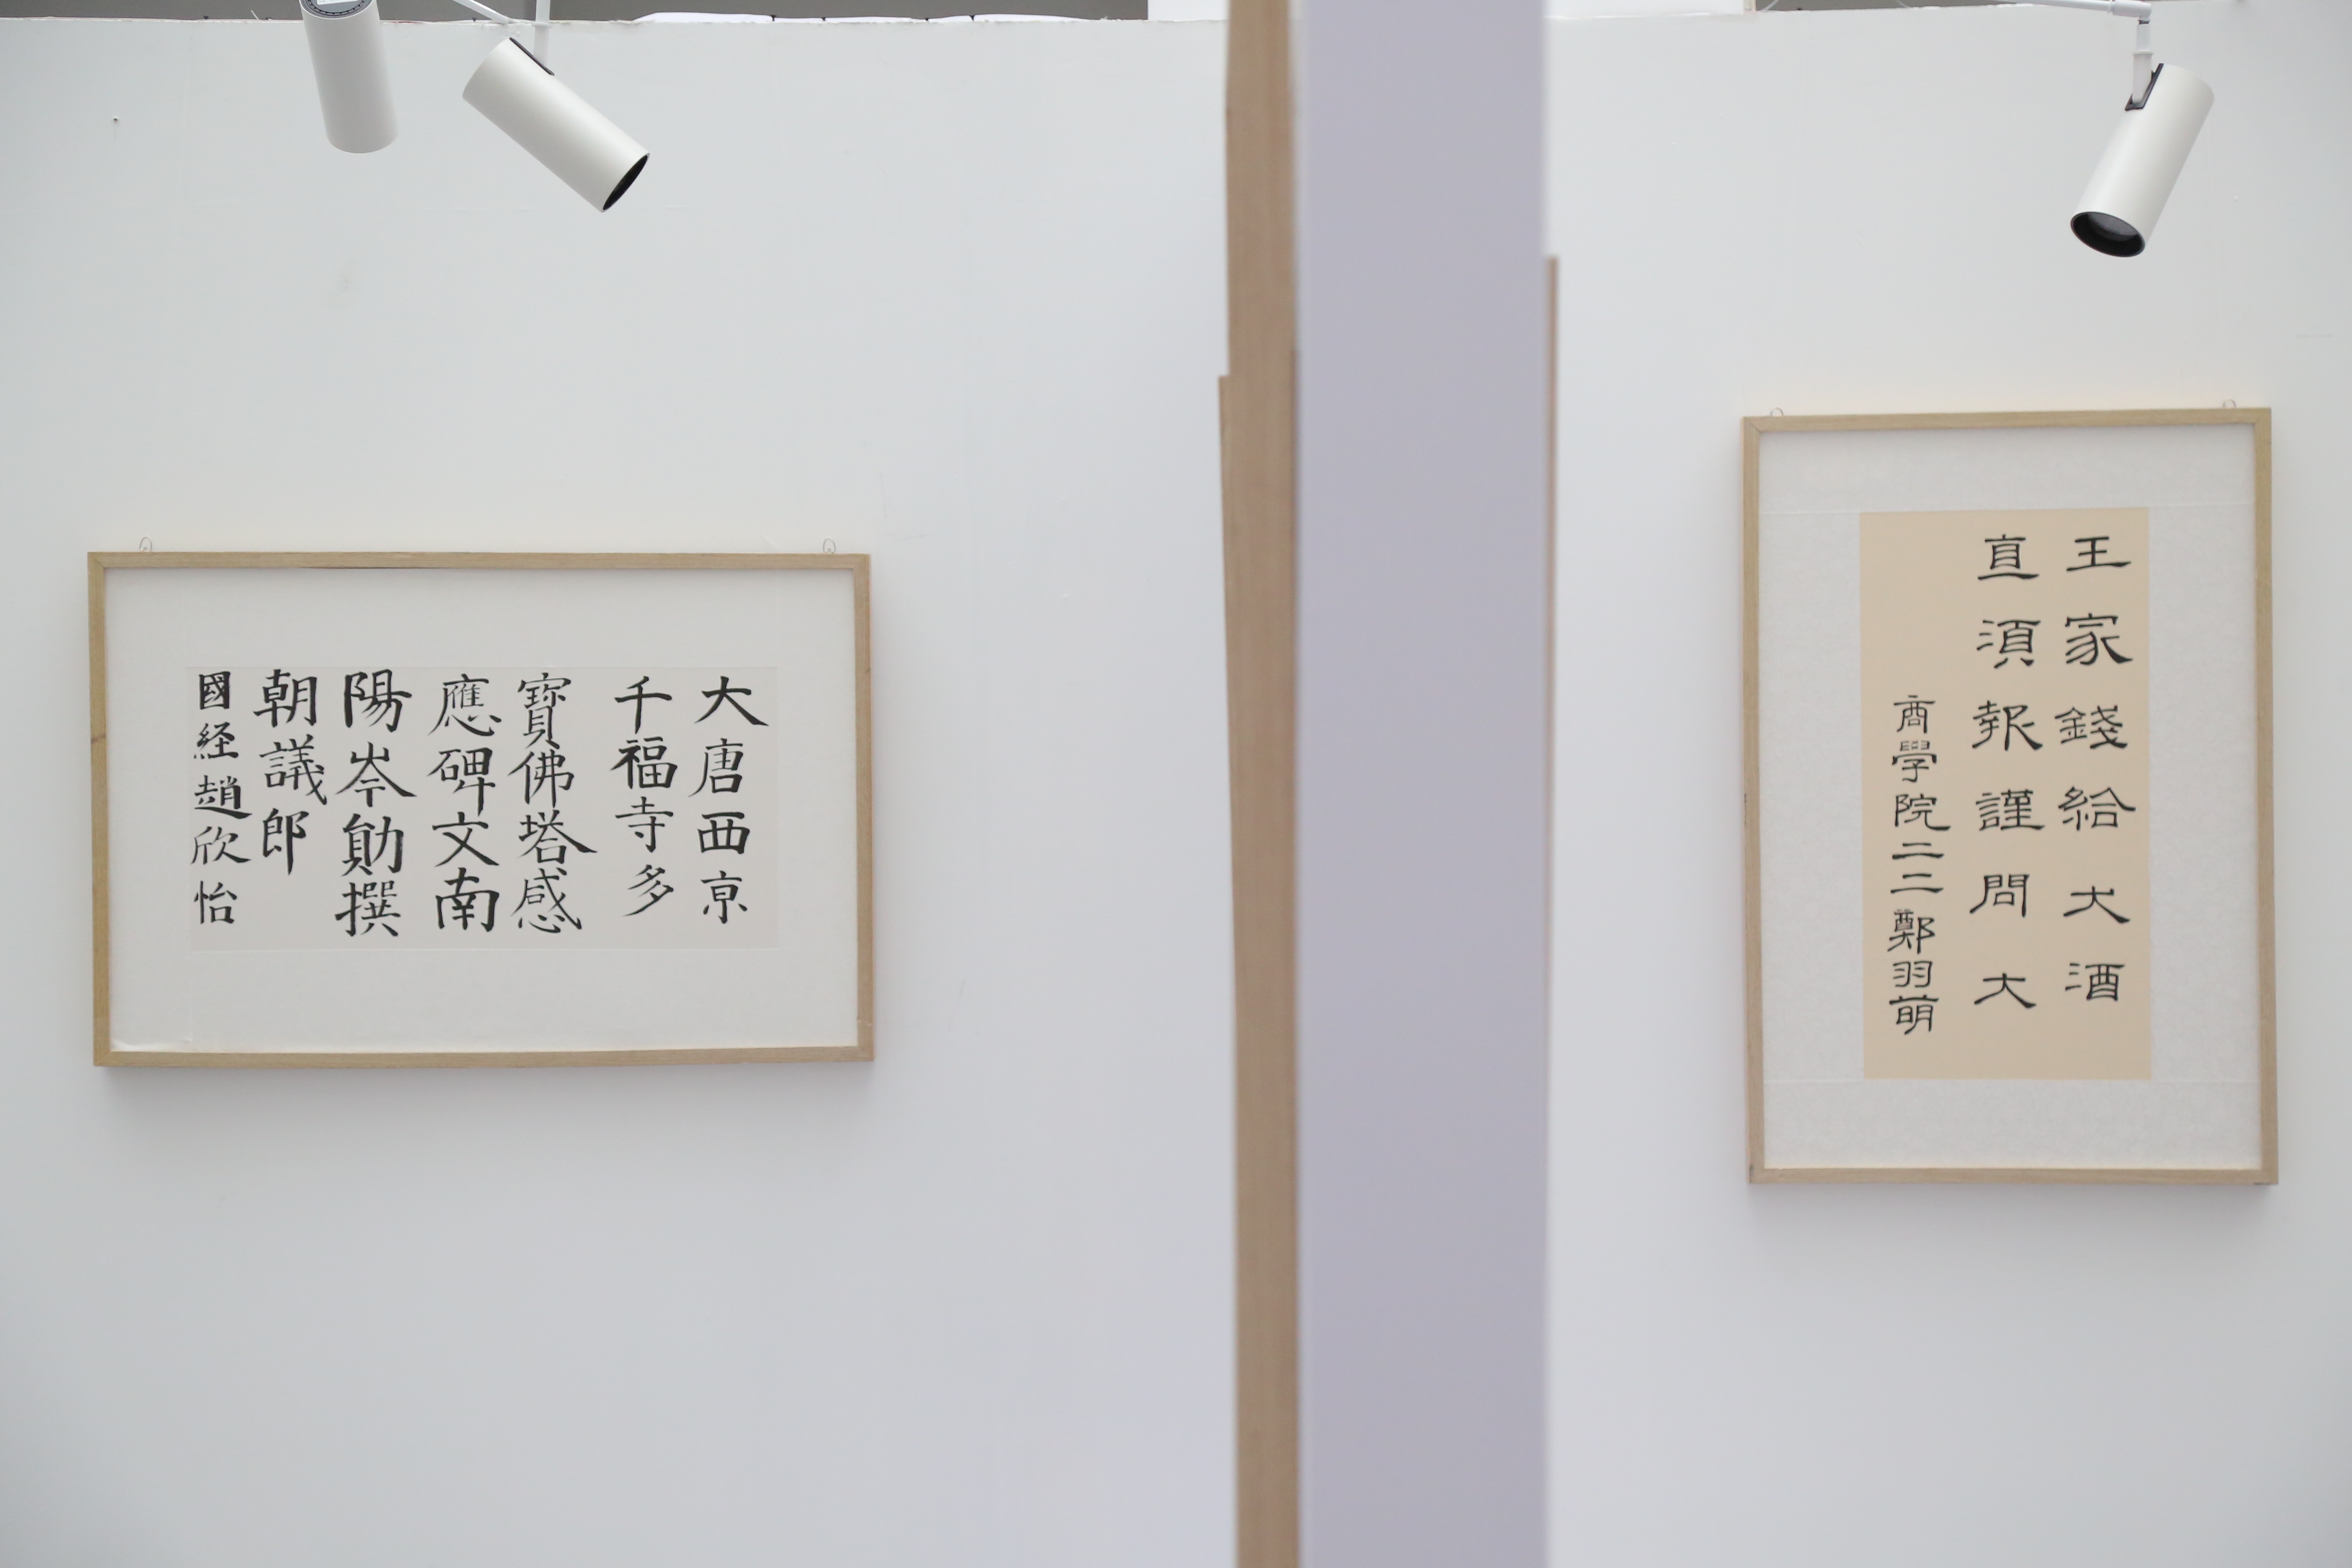 大唐西京
千福寺多
寶佛塔感
應碑文南
陽岑勛撰
朝議郎
國経趙欣怡
王家錢給大酒
直須報謹問大
商學院二二鄭羽萌